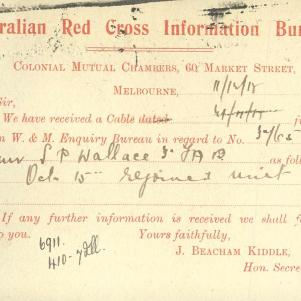 ralian Red Cross Information Bu
Colonial Mutual Chambers, 60 Market Street,
Melbourne, 11/12/18
Sir,
We have received a Cable dated f
n W. & M. Enquiry Bureau in regard to No.
S P Wallace as fol
Oct 15 rejoined unit
If any further information is received we shall f
to you. Yours faithfully,
6911. J. Beacham Kiddle,
Hon. Secre